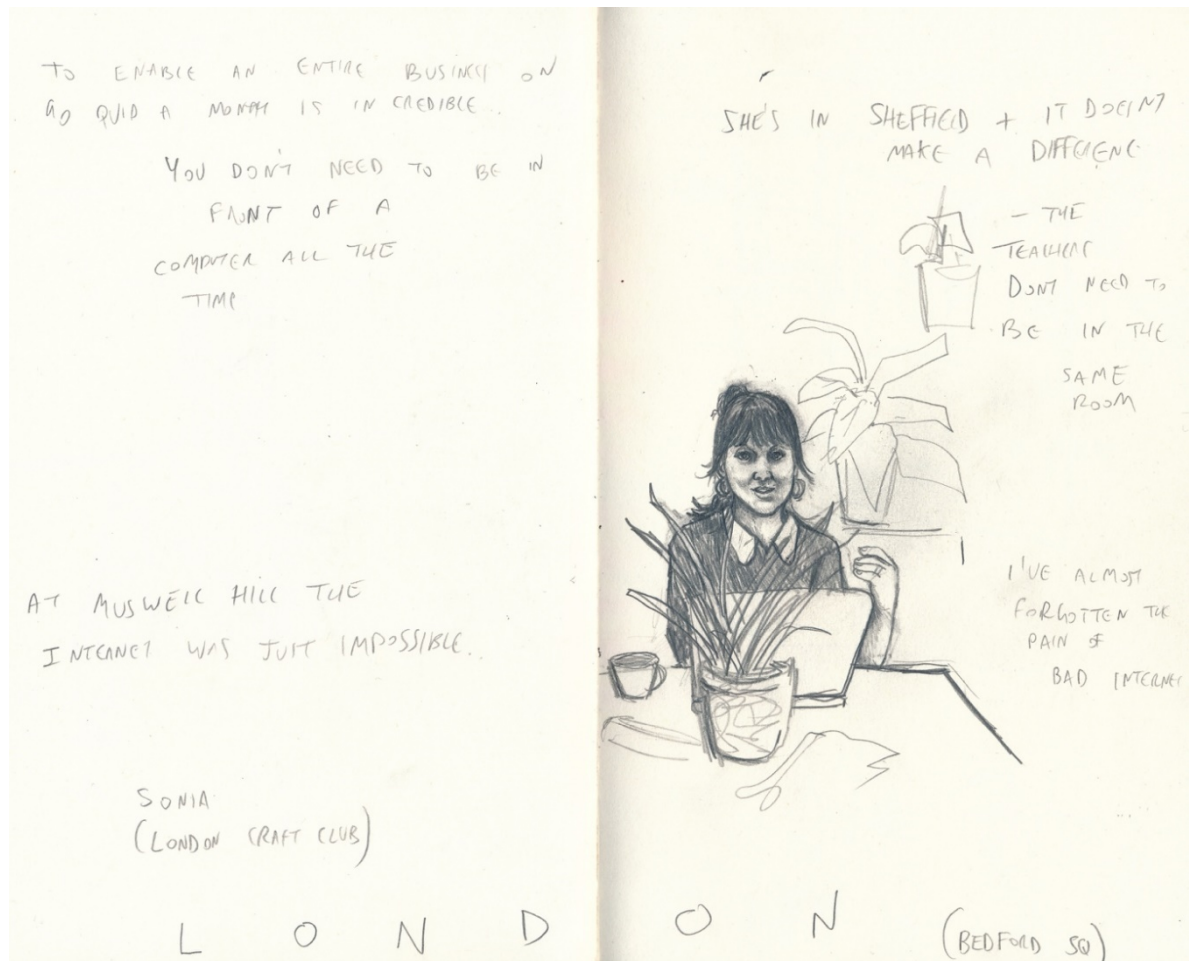 TO ENABLE AN ENTIRE BUSINESS ON
40 QUID A MONTH IS INCREDIBLE.
YOU DON'T NEED TO BE IN
FRONT OF A
COMPUTER ALL THE
TIME
AT MUSWELL HILL THE
INTERNET WAS JUST IMPOSSIBLE.
SONIA
(LONDON CRAFT CLUB)
SHE'S IN SHEFFIELD + IT DOESN'T
MAKE A DIFFERENCE
- THE
TEACHERS
DONT NEED TO
BE IN THE
SAME
ROOM
I'VE ALMOST
FORGOTTEN THE
PAIN OF
BAD INTERNET
LONDON
(BEDFORD SQ)